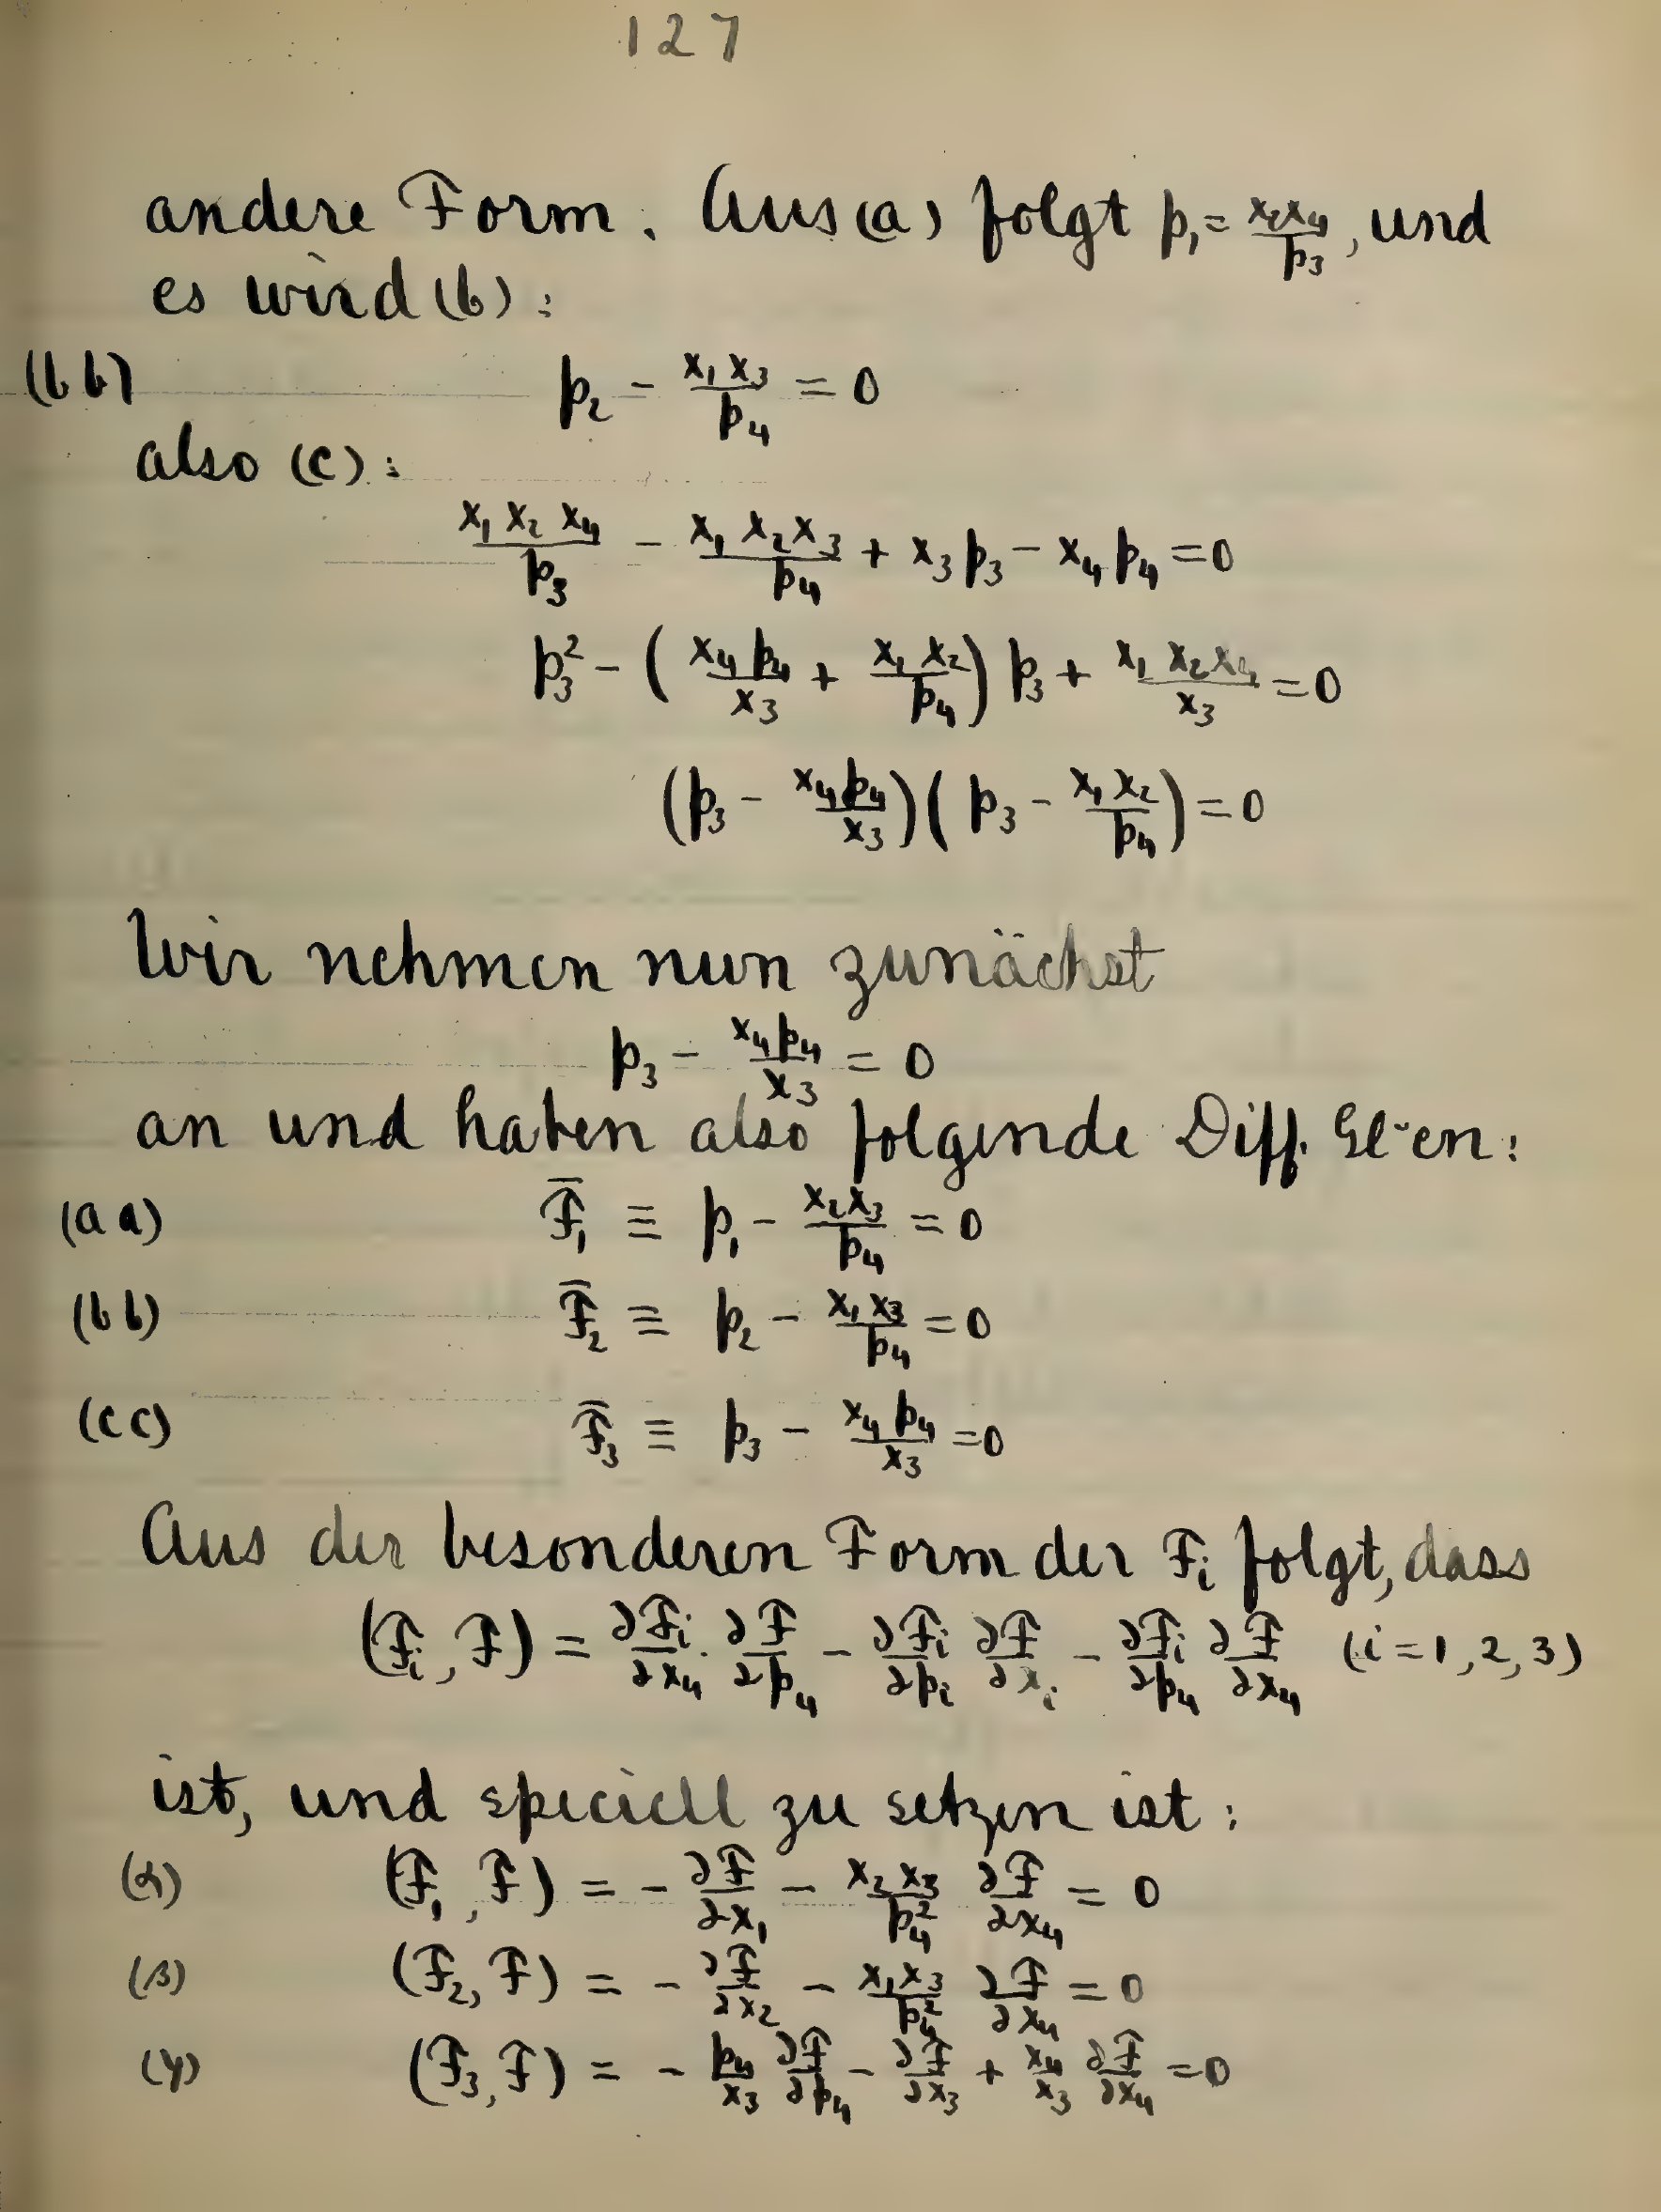 127
andere Form. Aus (a) folgt p₁ = x₂x₄/p₃, und
es wird (b):
(bb) p₂ - x₁x₃/p₄ = 0
also (c):
x₁x₂x₄/p₃ - x₁x₂x₃/p₄ + x₃p₃ - x₄p₄ = 0
p₃² - (x₄p₄/x₃ + x₁x₂/p₄) p₃ + x₁x₂x₄/x₃ = 0
(p₃ - x₄p₄/x₃)(p₃ - x₁x₂/p₄) = 0
Wir nehmen nun zunächst
p₃ - x₄p₄/x₃ = 0
an und haben also folgende Diff. Gl-en:
(aa) F̅₁ ≡ p₁ - x₂x₃/p₄ = 0
(bb) F̅₂ ≡ p₂ - x₁x₃/p₄ = 0
(cc) F̅₃ ≡ p₃ - x₄p₄/x₃ = 0
Aus der besonderen Form der Fᵢ folgt, dass
(Fᵢ, F) = ∂Fᵢ/∂x₄ · ∂F/∂p₄ - ∂Fᵢ/∂pᵢ ∂F/∂xᵢ - ∂Fᵢ/∂p₄ ∂F/∂x₄ (i = 1, 2, 3)
ist, und speciell zu setzen ist:
(α) (F₁, F) = - ∂F/∂x₁ - x₂x₃/p₄² ∂F/∂x₄ = 0
(β) (F₂, F) = - ∂F/∂x₂ - x₁x₃/p₄² ∂F/∂x₄ = 0
(γ) (F₃, F) = - p₄/x₃ ∂F/∂p₄ - ∂F/∂x₃ + x₄/x₃ ∂F/∂x₄ = 0